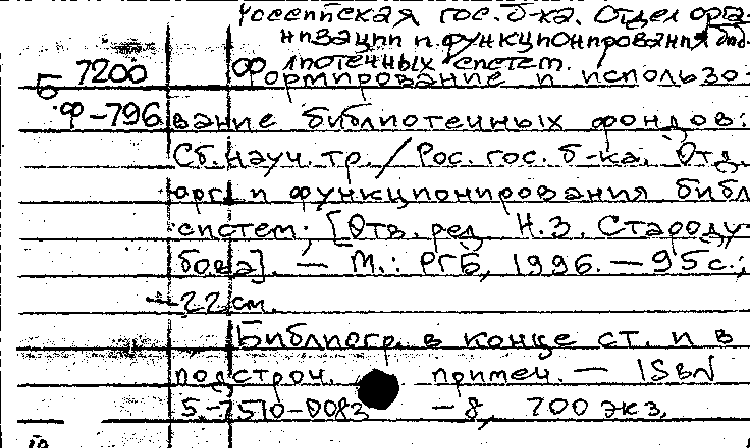 Российская гос. б-ка. Отдел орга-
низации и функционирования биб-
лиотечных систем.
Б 7200 Формирование и использо-
Ф-796 вание библиотечных фондов:
Сб. науч. тр. / Рос. гос. б-ка. Отд.
орг. и функционирования библ.
систем; [Отв. ред. Н.З. Староду-
бова]. — М.: РГБ, 1996. — 95 с.;
22 см.
Библиогр. в конце ст. и в
подстроч. примеч. — ISBN
5-7510-0083 -8, 700 экз.